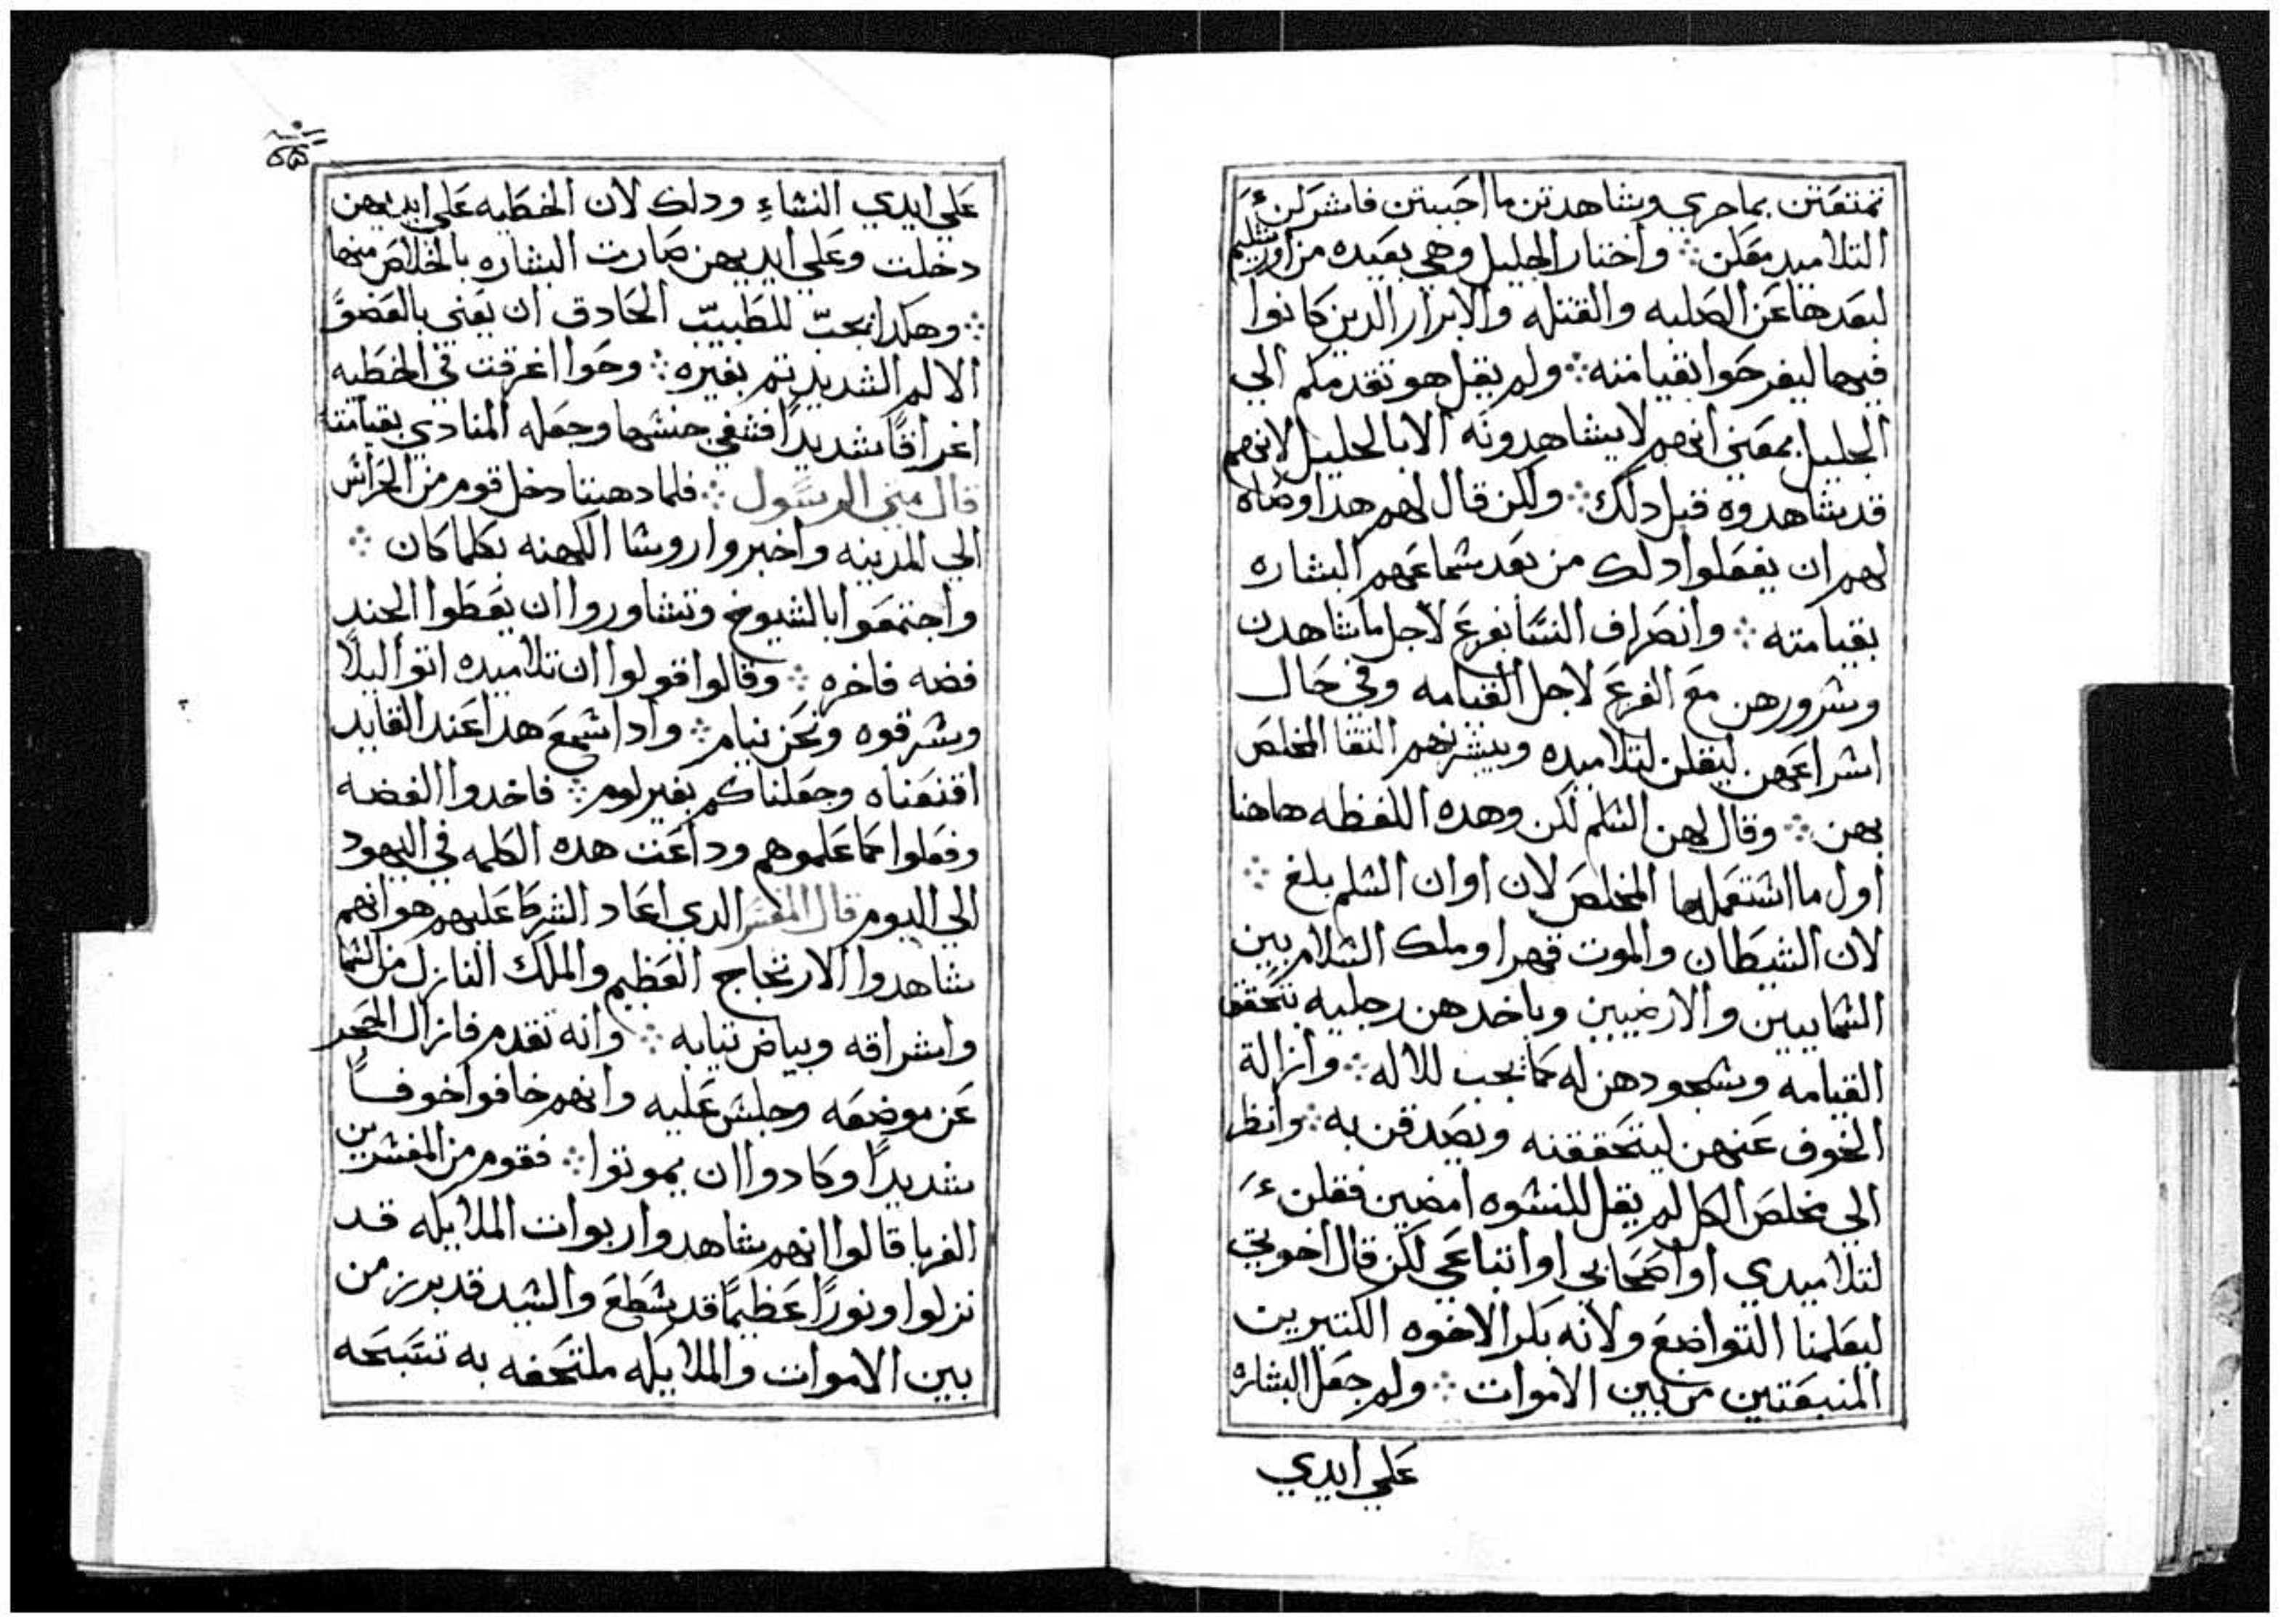 تمتعتن بما جري وشاهدتن ما احببتن فاشرعن
التلاميد معلن ܀ واختار الجليل وهي بعيده من اورشليم
لبعدها عن الصلبه والقتله والابرار الدين كانوا
فيها ليفرحوا بقيامته ܀ ولم يقل هو تقدمكم الي
الجليل بمعني انهم لا يشاهدونه الا بالجليل لانهم
قد شاهدوه قبل دلك ܀ ولكن قال لهم هدا وصاه
لهم ان يفعلوا دلك من بعد شماعهم البشاره
بقيامته ܀ وانصراف النسا بفزع لاجل ما شاهدن
وشرورهن مع الفزع لاجل القيامه وفي حال
اشراعهن ليقلن لتلاميده ويبشرنهم التقا المخلص
بهن ܀ وقال لهن الشلم لكن وهده اللفظه هاهنا
اول ما اشتعملها المخلص لان اوان الشلم بلغ ܀
لان الشيطان والموت قهرا وملك الشلام بين
الشماييين والارضيين وياخدهن رجليه بتحقق
القيامه وشجودهن له كما يجب للاله ܀ وازالة
الخوف عنهن ليتحققنه ويصدقن به ܀ وانظر
الي مخلص الكل لم يقل للنشوه امضين فقلن
لتلاميدي او اصحابي او اتباعي لكن قال اخوتي
ليعلمنا التواضع ولانه بكر الاخوه الكتيرين
المنبعتين من بين الاموات ܀ ولم جعل البشاره
علي ايدي
علي ايدي النشاء ودلك لان الخطيه علي ايديهن
دخلت وعلي ايديهن صارت البشاره بالخلاص منها
܀ وهكدا يجب للطبيب الحادق ان يعني بالعضو
الالم الشديد تم بغيره ܀ وحوا اغرقت في الخطيه
اغراقا شديدا فشفي جنشها وجعله المنادي بقيامته
قال متي الرسول ܀ فلما دهبتا دخل قوم من الحراس
الي المدينه واخبروا روشا الكهنه بكلما كان ܀
واجتمعوا بالشيوخ وتشاوروا ان يعطوا الجند
فضه فاخره ܀ وقالوا قولوا ان تلاميده اتوا ليلا
وشرقوه ونحن نيام ܀ وادا شمع هدا عند القايد
اقنعناه وجعلناكم بغير لوم ܀ فاخدوا الفضه
وفعلوا كما علموهم وداعت هده الكلمه في اليهود
الي اليوم قال المفسر الدي اعاد الشرط عليهم هو انهم
شاهدوا الارتجاج العظيم والملك النازل من الشما
واشراقه وبياض تيابه ܀ وانه تقدم فازال الحجر
عن موضعه وجلس عليه وانهم خافوا خوفا
شديدا وكادوا ان يموتوا ܀ فقوم من المفشرين
الغربا قالوا انهم شاهدوا ربوات الملايكه قد
نزلوا ونورا عظيما قد شطع والشيد قد برز من
بين الاموات والملايكه ملتحفه به تسبحه